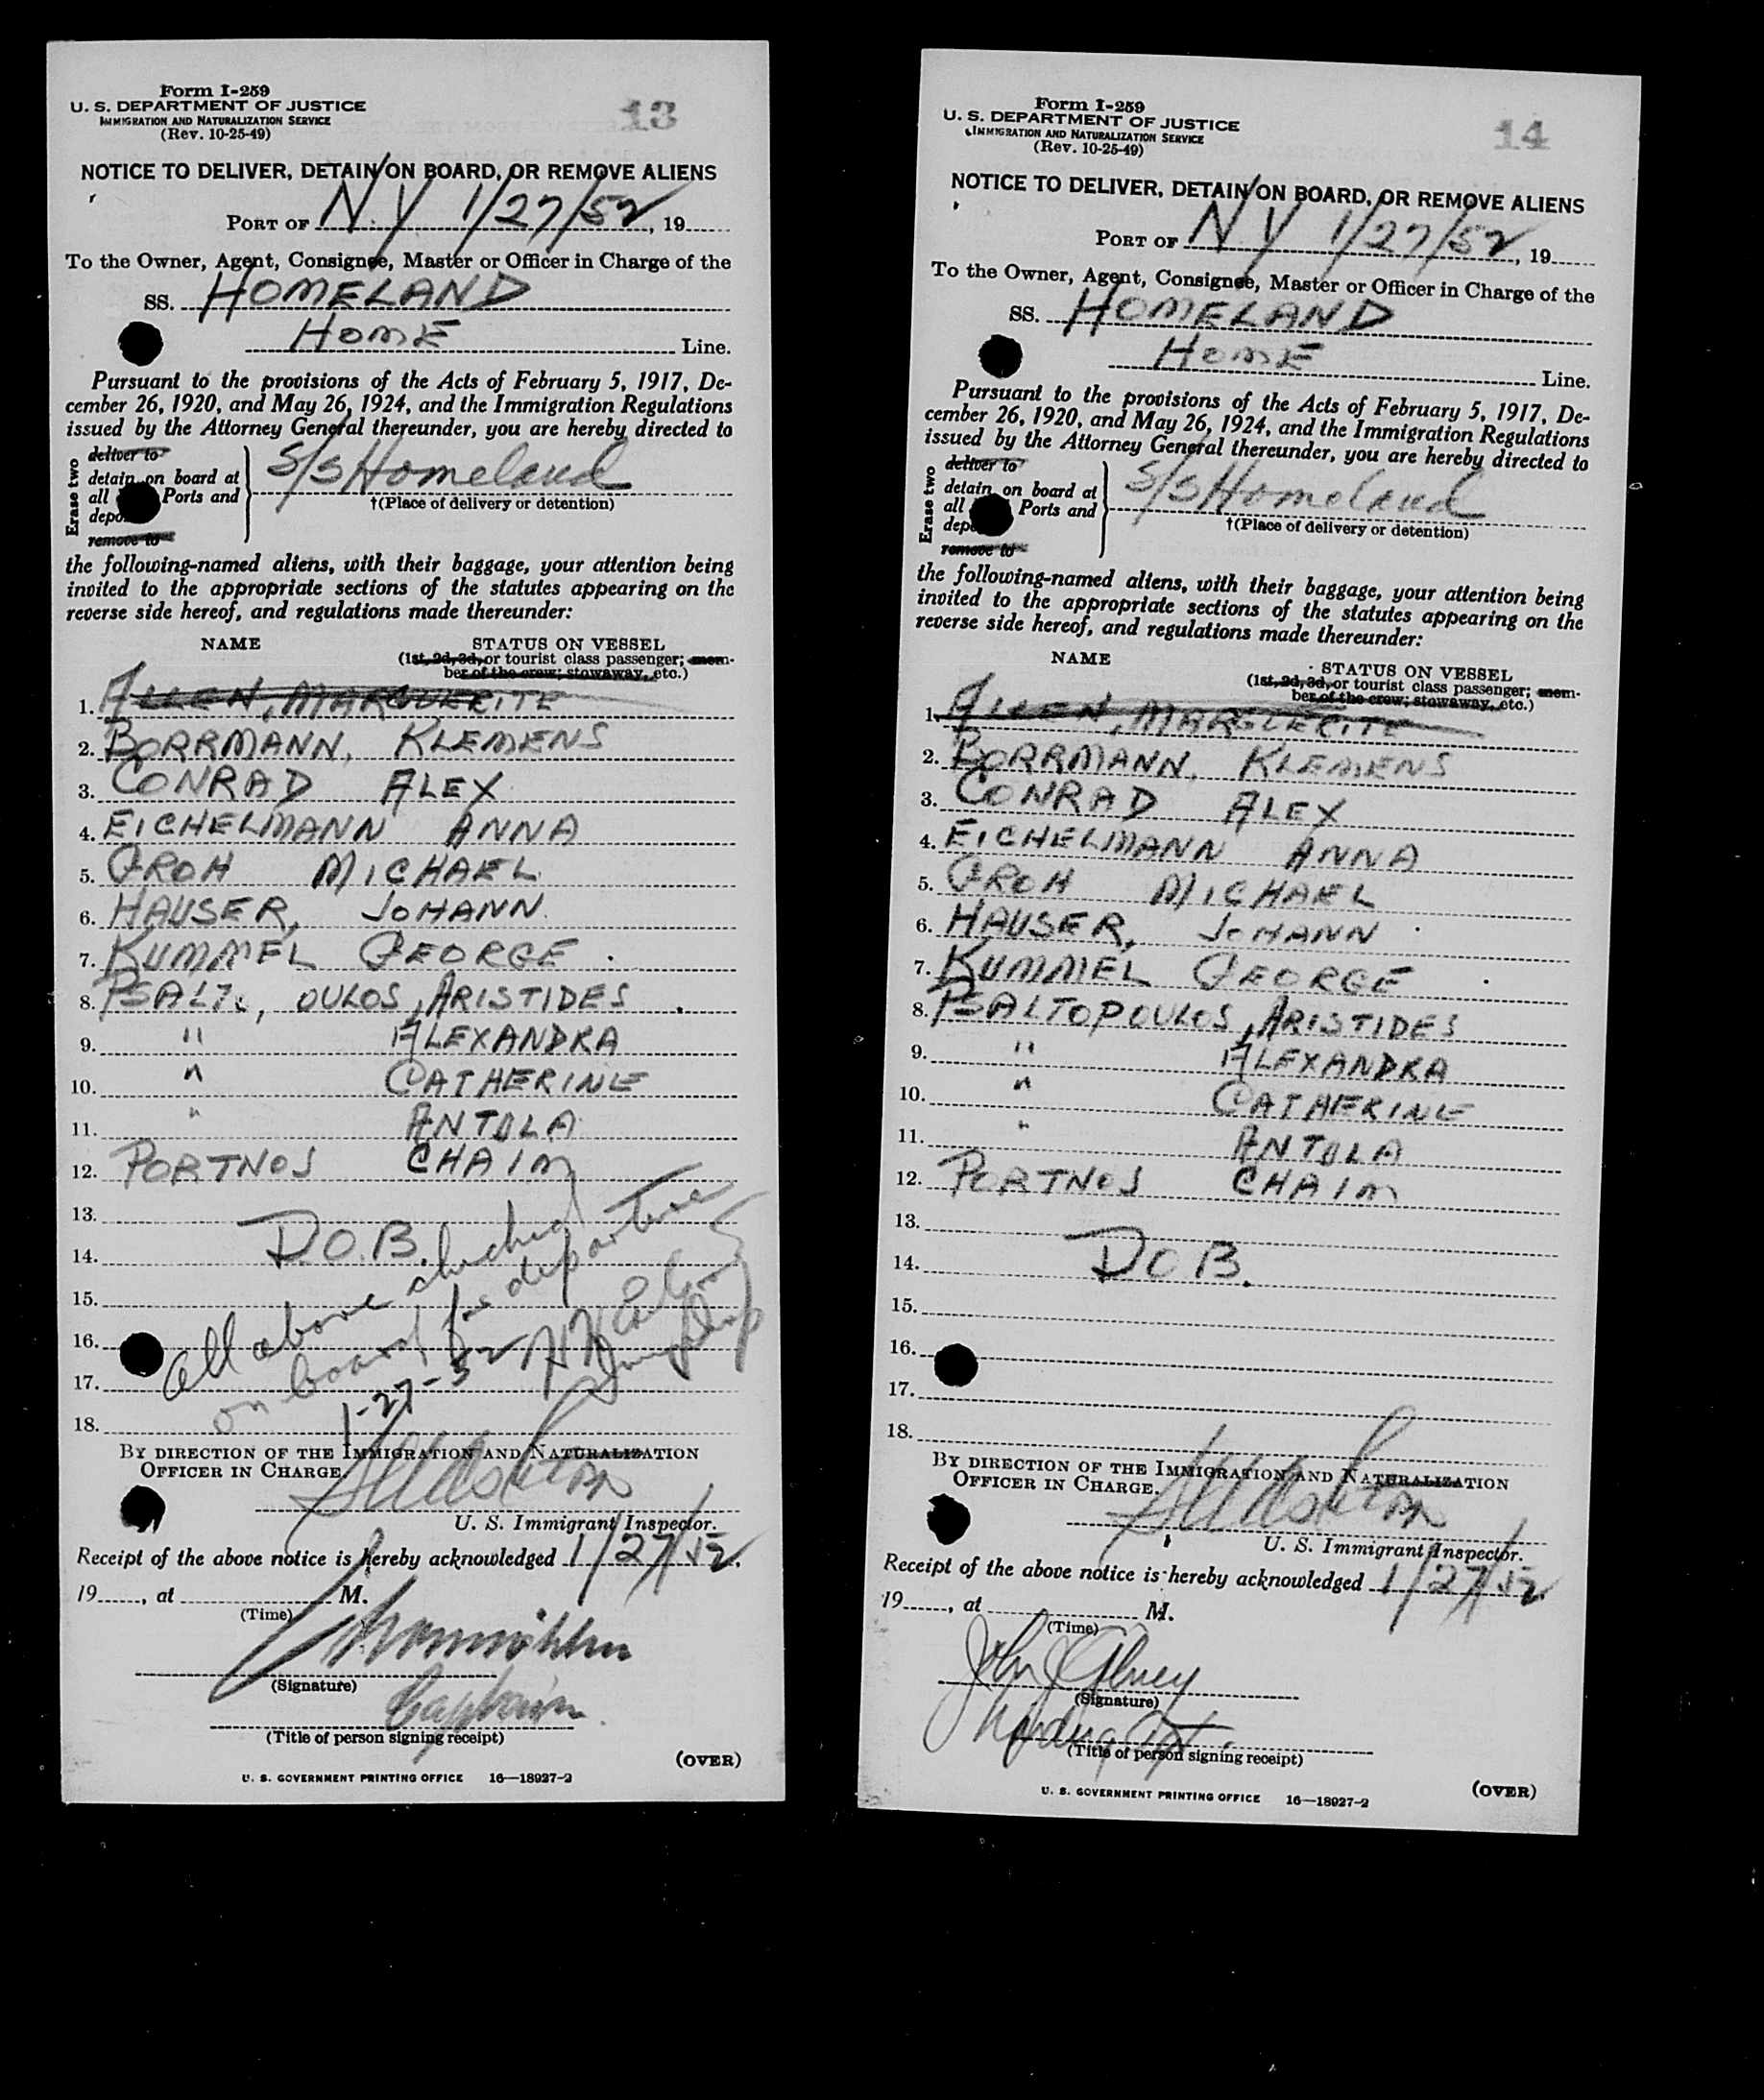 Form I-259
U. S. DEPARTMENT OF JUSTICE
IMMIGRATION AND NATURALIZATION SERVICE
(Rev. 10-25-49)
13
NOTICE TO DELIVER, DETAIN ON BOARD, OR REMOVE ALIENS
PORT OF N.Y 1/27/52, 19
To the Owner, Agent, Consignee, Master or Officer in Charge of the
SS. HOMELAND
HOME Line.
Pursuant to the provisions of the Acts of February 5, 1917, De-
cember 26, 1920, and May 26, 1924, and the Immigration Regulations
issued by the Attorney General thereunder, you are hereby directed to
Erase two
deliver to
detain on board at
all Ports and
remove to
S/S Homeland
†(Place of delivery or detention)
the following-named aliens, with their baggage, your attention being
invited to the appropriate sections of the statutes appearing on the
reverse side hereof, and regulations made thereunder:
NAME STATUS ON VESSEL
(1st, 2d, 3d, or tourist class passenger; mem-
ber of the crew; stowaway, etc.)
1. ALLEN, MARGUERITE
2. BORRMANN, KLEMENS
3. CONRAD ALEX
4. EICHELMANN ANNA
5. GROH MICHAEL
6. HAUSER, JOHANN
7. KUMMEL GEORGE
8. OULOS, ARISTIDES
9. " ALEXANDRA
10. " CATHERINE
11. " ANTULA
12. PORTNOS CHAIM
13.
14. D.O.B.
15.
16.
17.
18.
All above checked
on board for departure
1-27-52
BY DIRECTION OF THE IMMIGRATION AND NATURALIZATION
OFFICER IN CHARGE.
U. S. Immigrant Inspector.
Receipt of the above notice is hereby acknowledged 1/27/52,
19, at M.
(Time)
(Signature)
Captain
(Title of person signing receipt)
(OVER)
U. S. GOVERNMENT PRINTING OFFICE 16—18927-2
Form I-259
U. S. DEPARTMENT OF JUSTICE
IMMIGRATION AND NATURALIZATION SERVICE
(Rev. 10-25-49)
14
NOTICE TO DELIVER, DETAIN ON BOARD, OR REMOVE ALIENS
PORT OF N Y 1/27/52, 19
To the Owner, Agent, Consignee, Master or Officer in Charge of the
SS. HOMELAND
HOME Line.
Pursuant to the provisions of the Acts of February 5, 1917, De-
cember 26, 1920, and May 26, 1924, and the Immigration Regulations
issued by the Attorney General thereunder, you are hereby directed to
Erase two
deliver to
detain on board at
all Ports and
remove to
S/S Homeland
†(Place of delivery or detention)
the following-named aliens, with their baggage, your attention being
invited to the appropriate sections of the statutes appearing on the
reverse side hereof, and regulations made thereunder:
NAME STATUS ON VESSEL
(1st, 2d, 3d, or tourist class passenger; mem-
ber of the crew; stowaway, etc.)
1. ALLEN, MARGUERITE
2. BORRMANN, KLEMENS
3. CONRAD ALEX
4. EICHELMANN ANNA
5. GROH MICHAEL
6. HAUSER, JOHANN
7. KUMMEL GEORGE
8. PSALTOPOULOS, ARISTIDES
9. " ALEXANDRA
10. " CATHERINE
11. " ANTULA
12. PORTNOS CHAIM
13.
14. D O B.
15.
16.
17.
18.
BY DIRECTION OF THE IMMIGRATION AND NATURALIZATION
OFFICER IN CHARGE.
U. S. Immigrant Inspector.
Receipt of the above notice is hereby acknowledged 1/27/52,
19, at M.
(Time)
John J
(Signature)
(Title of person signing receipt)
(OVER)
U. S. GOVERNMENT PRINTING OFFICE 16—18927-2